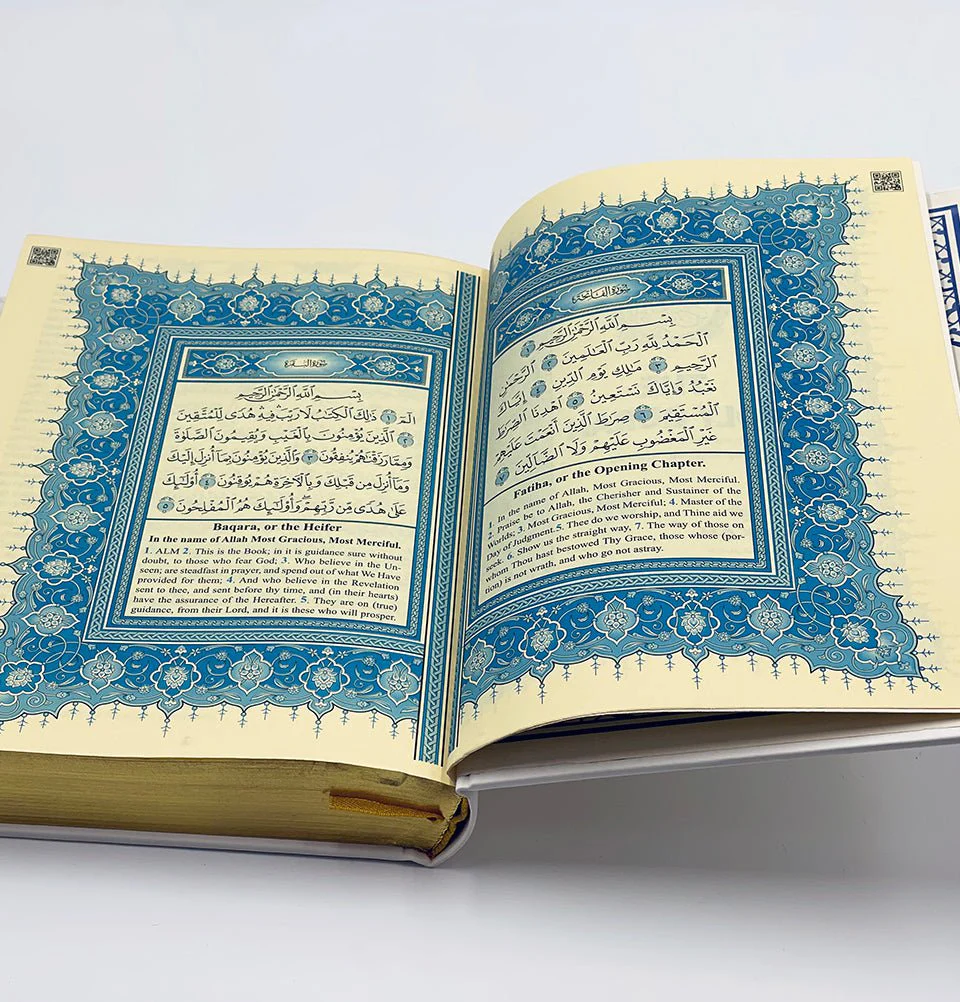 سورة الفاتحة
بِسْمِ اللَّهِ الرَّحْمَٰنِ الرَّحِيمِ ١
الْحَمْدُ لِلَّهِ رَبِّ الْعَالَمِينَ ٢ الرَّحْمَٰنِ
الرَّحِيمِ ٣ مَالِكِ يَوْمِ الدِّينِ ٤ إِيَّاكَ
نَعْبُدُ وَإِيَّاكَ نَسْتَعِينُ ٥ اهْدِنَا الصِّرَاطَ
الْمُسْتَقِيمَ ٦ صِرَاطَ الَّذِينَ أَنْعَمْتَ عَلَيْهِمْ
غَيْرِ الْمَغْضُوبِ عَلَيْهِمْ وَلَا الضَّالِّينَ ٧
Fatiha, or the Opening Chapter.
1. In the name of Allah, Most Gracious, Most Merciful.
2. Praise be to Allah, the Cherisher and Sustainer of the
Worlds; 3. Most Gracious, Most Merciful; 4. Master of the
Day of Judgment. 5. Thee do we worship, and Thine aid we
seek. 6. Show us the straight way, 7. The way of those on
whom Thou hast bestowed Thy Grace, those whose (por-
tion) is not wrath, and who go not astray.
سورة البقرة
بِسْمِ اللَّهِ الرَّحْمَٰنِ الرَّحِيمِ
الم ١ ذَٰلِكَ الْكِتَابُ لَا رَيْبَ فِيهِ هُدًى لِلْمُتَّقِينَ
٢ الَّذِينَ يُؤْمِنُونَ بِالْغَيْبِ وَيُقِيمُونَ الصَّلَوٰةَ
وَمِمَّا رَزَقْنَاهُمْ يُنْفِقُونَ ٣ وَالَّذِينَ يُؤْمِنُونَ بِمَا أُنْزِلَ إِلَيْكَ
وَمَا أُنْزِلَ مِنْ قَبْلِكَ وَبِالْآخِرَةِ هُمْ يُوقِنُونَ ٤ أُولَٰئِكَ
عَلَىٰ هُدًى مِنْ رَبِّهِمْ وَأُولَٰئِكَ هُمُ الْمُفْلِحُونَ ٥
Baqara, or the Heifer
In the name of Allah Most Gracious, Most Merciful.
1. ALM 2. This is the Book; in it is guidance sure without
doubt, to those who fear God; 3. Who believe in the Un-
seen; are steadfast in prayer, and spend out of what We Have
provided for them; 4. And who believe in the Revelation
sent to thee, and sent before thy time, and (in their hearts)
have the assurance of the Hereafter. 5. They are on (true)
guidance, from their Lord, and it is these who will prosper.